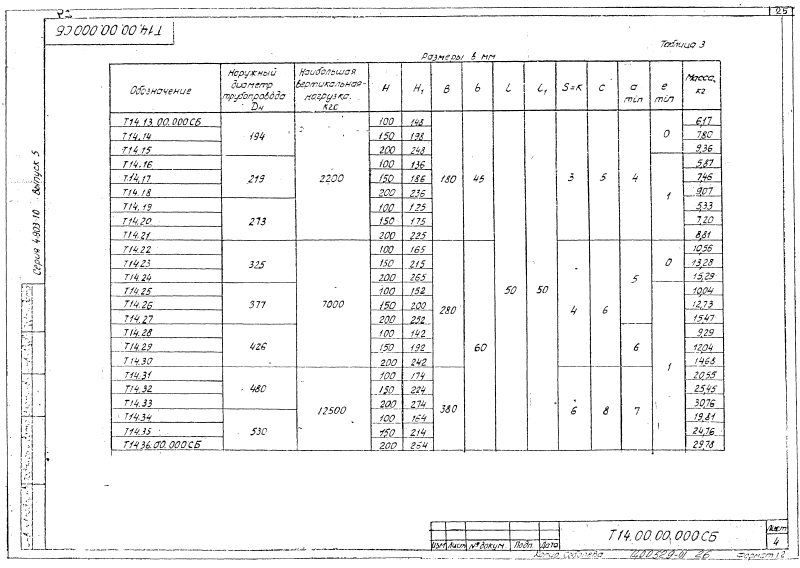 25
Т14.00.00.000СБ
Таблица 3
Размеры в мм
Обозначение | Наружный диаметр трубопровода Dн | Наибольшая вертикальная нагрузка. кгс | H | H₁ | B | b | L | L₁ | S=K | C | a min | e min | Масса, кг
Т14.13.00.000СБ | 194 | 2200 | 100 | 148 | 180 | 45 | 50 | 50 | 3 | 5 | 4 | 0 | 6,17
Т14.14 | 150 | 198 | 7,80
Т14.15 | 200 | 248 | 9,36
Т14.16 | 219 | 100 | 136 | 1 | 5,87
Т14.17 | 150 | 186 | 7,46
Т14.18 | 200 | 236 | 9,07
Т14.19 | 273 | 100 | 125 | 5,33
Т14.20 | 150 | 175 | 7,20
Т14.21 | 200 | 225 | 8,81
Т14.22 | 325 | 7000 | 100 | 165 | 280 | 60 | 4 | 6 | 5 | 0 | 10,56
Т14.23 | 150 | 215 | 13,28
Т14.24 | 200 | 265 | 15,29
Т14.25 | 377 | 100 | 152 | 1 | 10,04
Т14.26 | 150 | 200 | 12,73
Т14.27 | 200 | 252 | 15,47
Т14.28 | 426 | 100 | 142 | 6 | 9,29
Т14.29 | 150 | 192 | 12,04
Т14.30 | 200 | 242 | 14,68
Т14.31 | 480 | 12500 | 100 | 174 | 380 | 6 | 8 | 7 | 20,55
Т14.32 | 150 | 224 | 25,45
Т14.33 | 200 | 274 | 30,76
Т14.34 | 530 | 100 | 164 | 19,81
Т14.35 | 150 | 214 | 24,76
Т14.36.00.000СБ | 200 | 264 | 29,78
Серия 4.903-10 Выпуск 5
Изм Лист № докум Подп. Дата
Т14.00.00.000СБ
Лист
4
Копир. Соболева
Ц00529-01 26
Формат 12